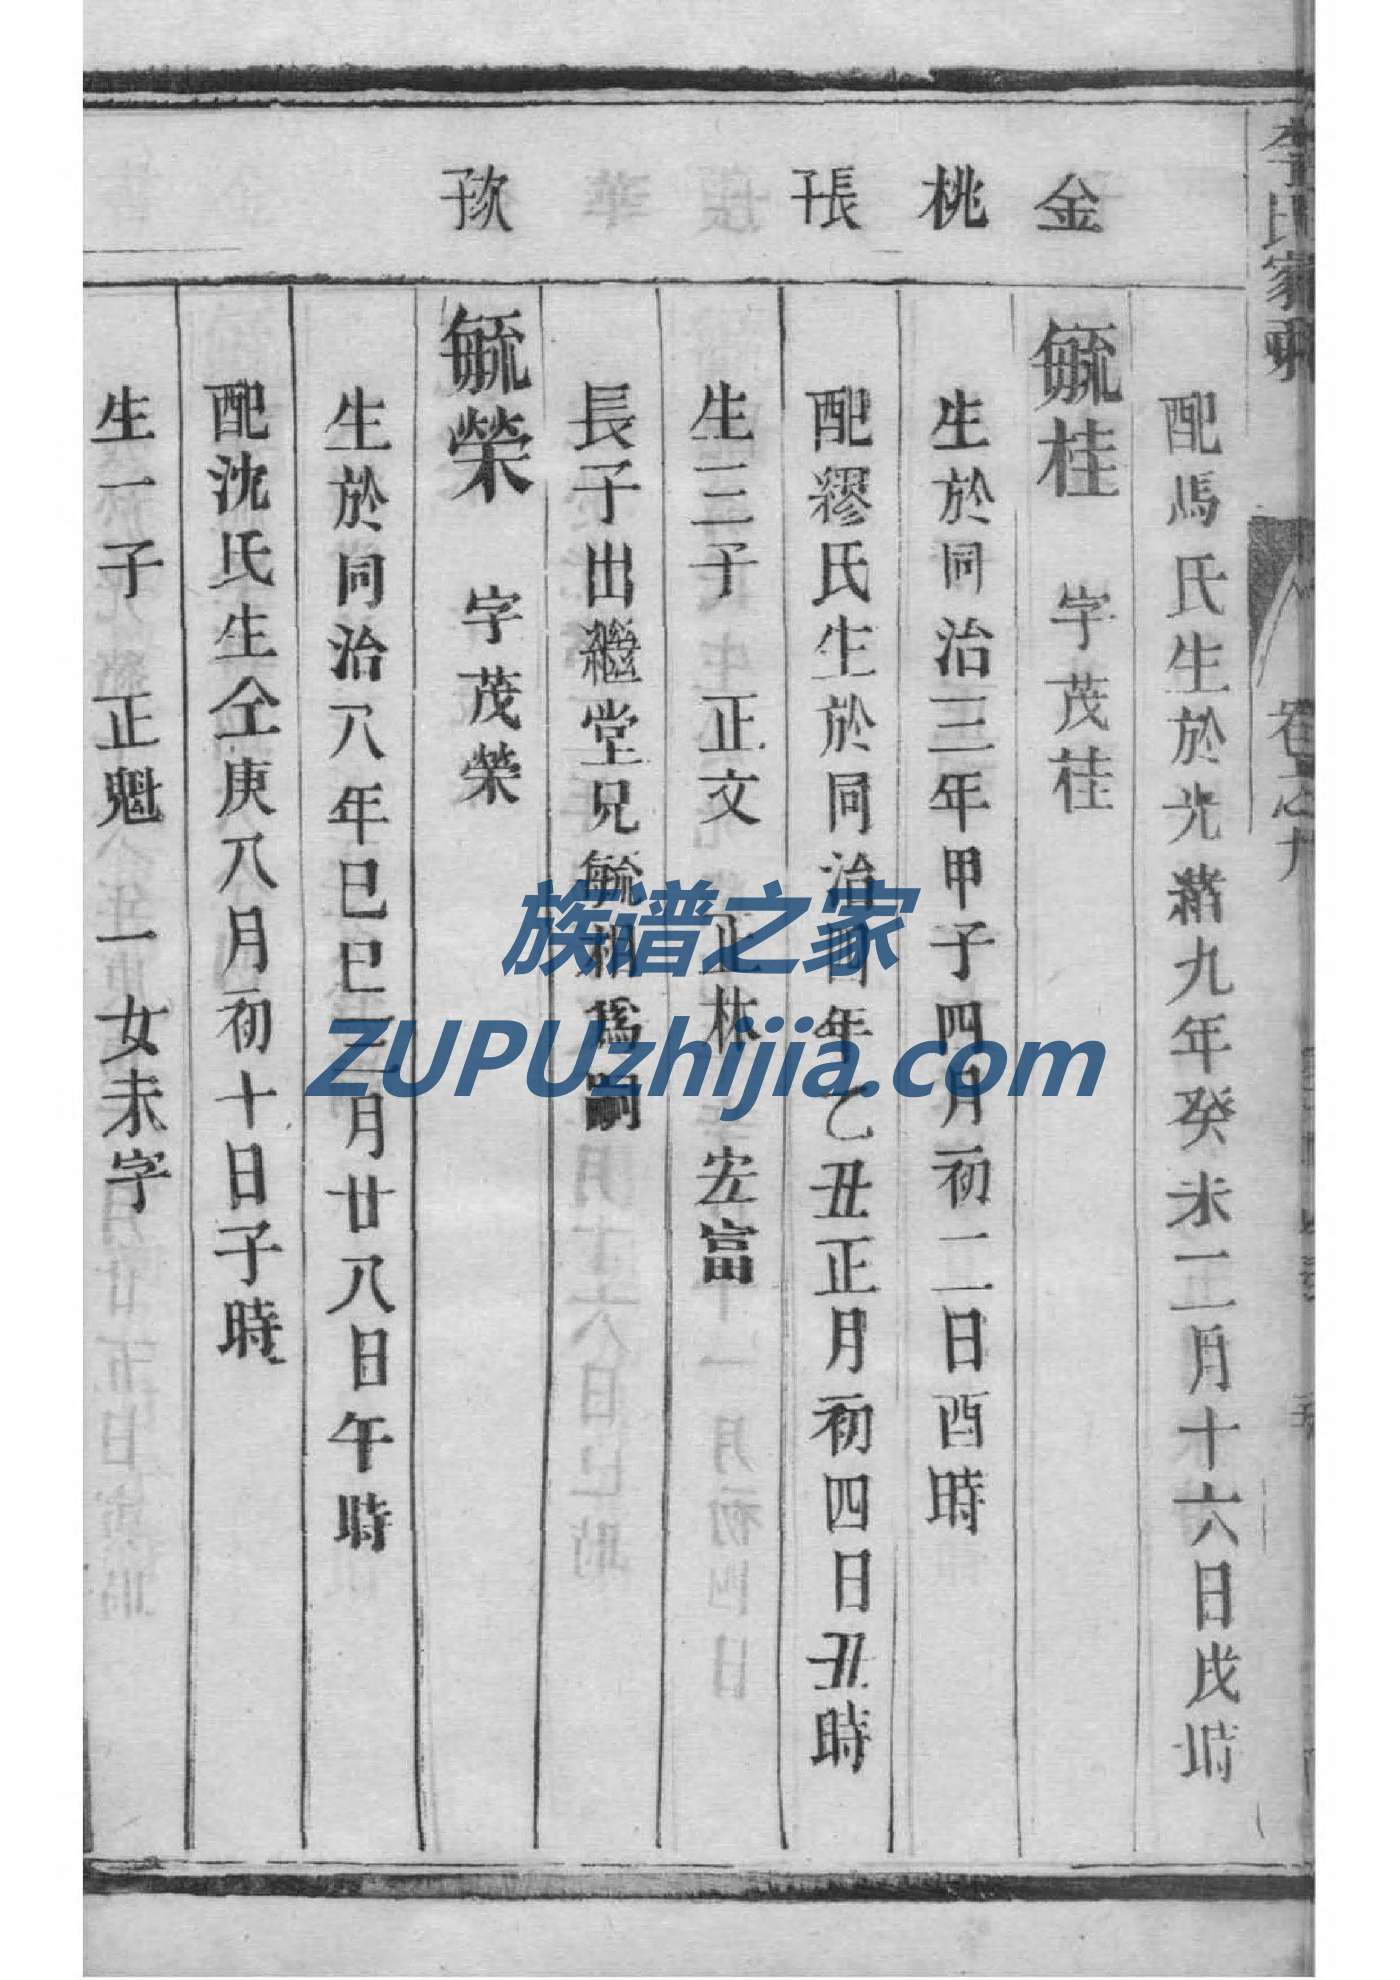 李氏家乘
卷之九
金桃
子長
子次
配馬氏生於光緒九年癸未二月十六日戌時
毓桂 字茂桂
生於同治三年甲子四月初二日酉時
配繆氏生於同治四年乙丑正月初四日丑時
生三子 正文 正林 宏富
長子出繼堂兄毓相爲嗣
毓榮 字茂榮
生於同治八年巳巳二月廿八日午時
配沈氏生仝庚八月初十日子時
生一子 正魁 一女未字
族谱之家
ZUPUzhijia.com